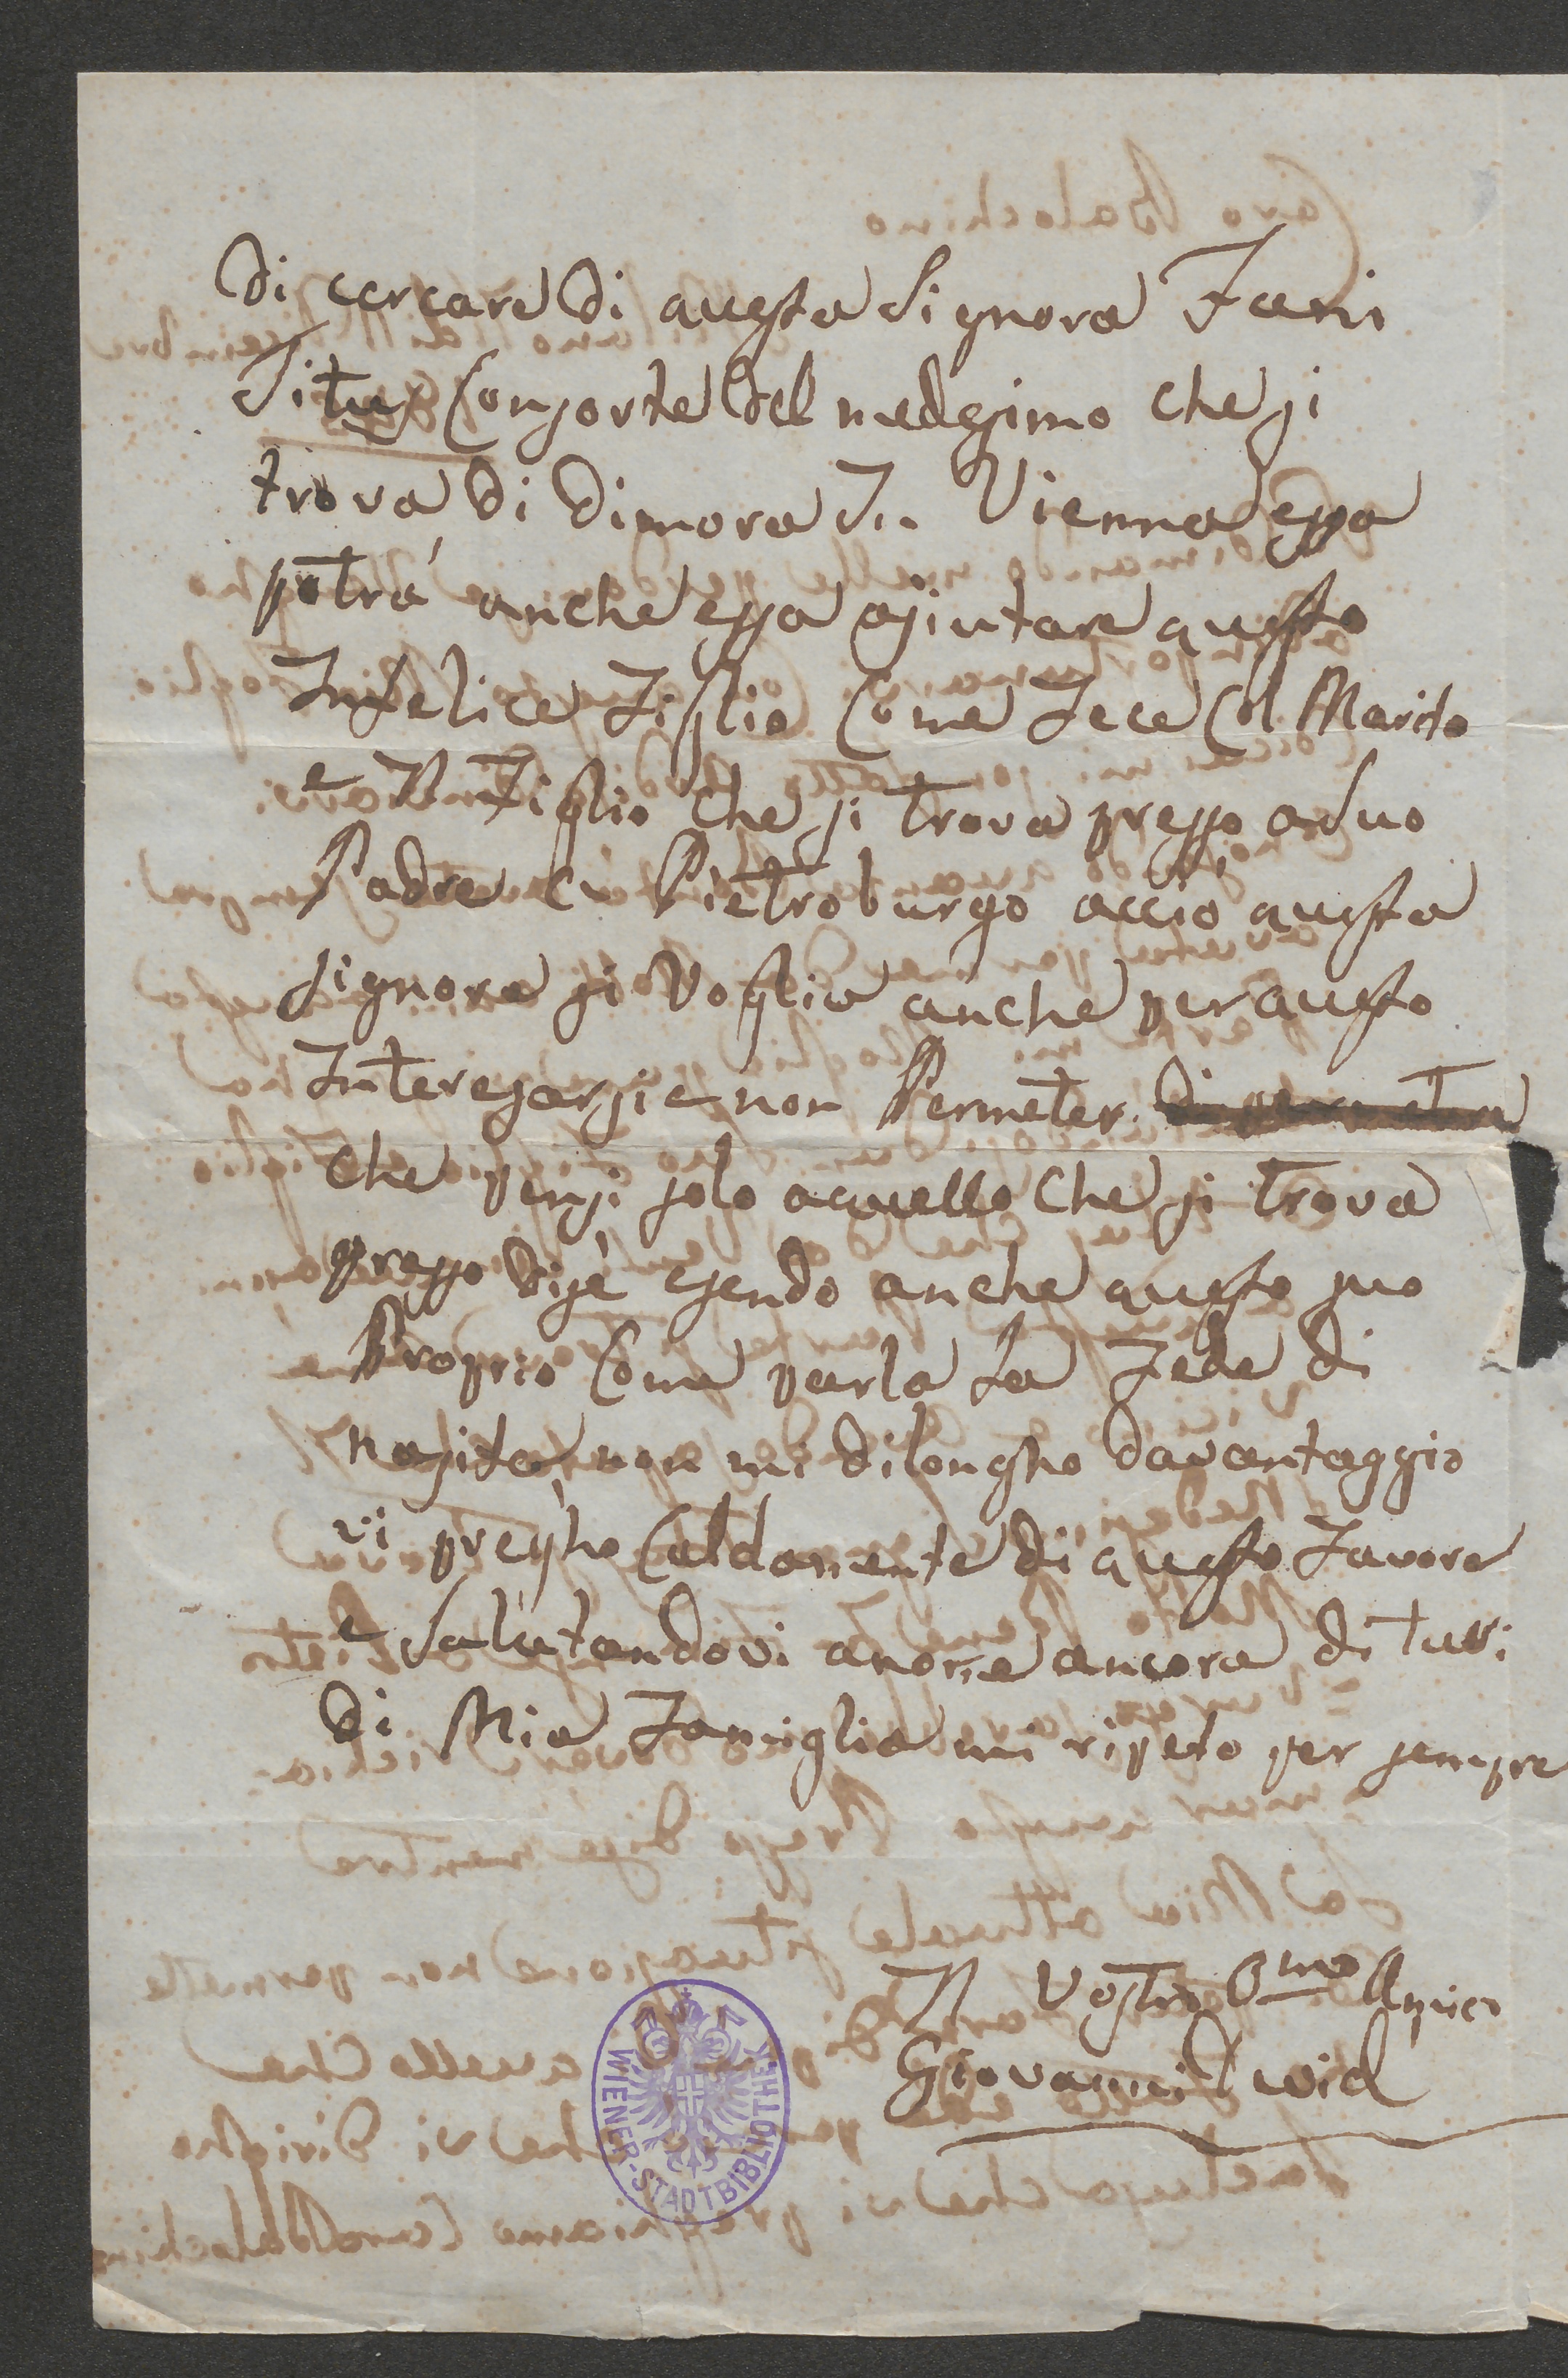 di cercare di questa Signora Fani
Titus Consorte del medesimo che si
trova di dimora in Vienna essa
potrà anche essa ajiutare questo
Infelice Figlio Come Fece Col Marito
e Il Figlio che si trova presso a Suo
Padre a Pietroburgo acciò questa
Signora si Voglia anche per questo
Interesarsi e non Permeter
che pensi solo a quello che si trova
presso di se esendo anche questo suo
Proprio Come parla La Fede di
nasita, non mi dilongho davantaggio
vi pregho Caldamente di questo Favore
e Salutandovi ancora di tutti
di Mia Famiglia mi ripeto per sempre
Il Vostro Omo Amico
Giovanni David
WIENER-STADTBIBLIOTHEK